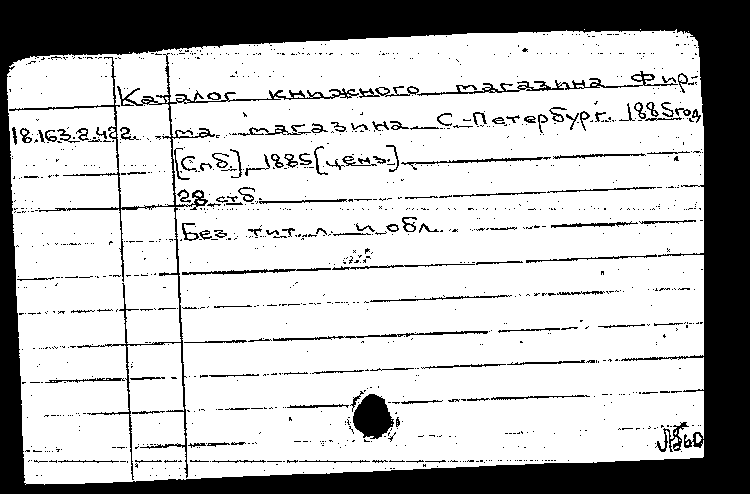 Каталог книжного магазина Фир-
18.163.2.482. ма магазина С-Петербург. 1885 год
[Спб.], 1885 [ценз.].
28 стб.
Без тит. л. и обл.